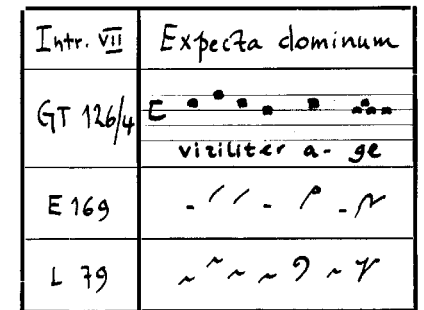 Intr. VII Expecta dominum
GT 126/4
viriliter a- ge
E 169
L 79